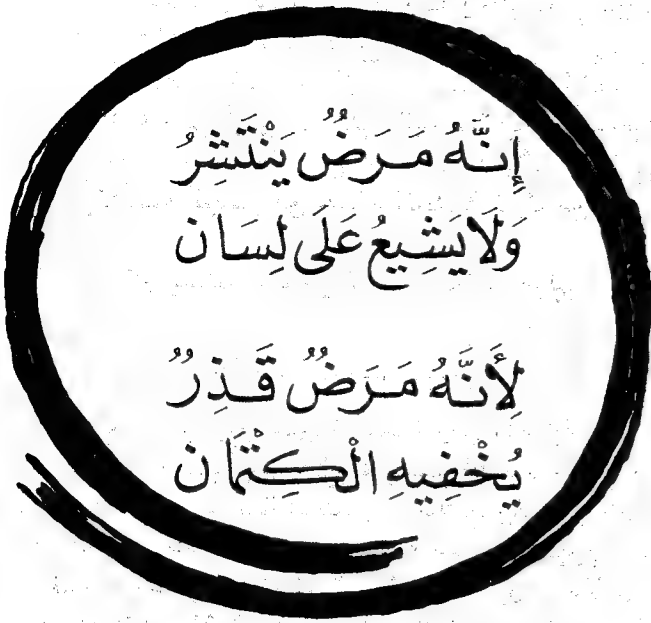 إِنَّهُ مَـرَضٌ يَنْتَشِرُ
وَلَا يَشِيعُ عَلَى لِسَان
لِأَنَّهُ مَـرَضٌ قَـذِرٌ
يُخْفِيهِ الْكِتْمَان